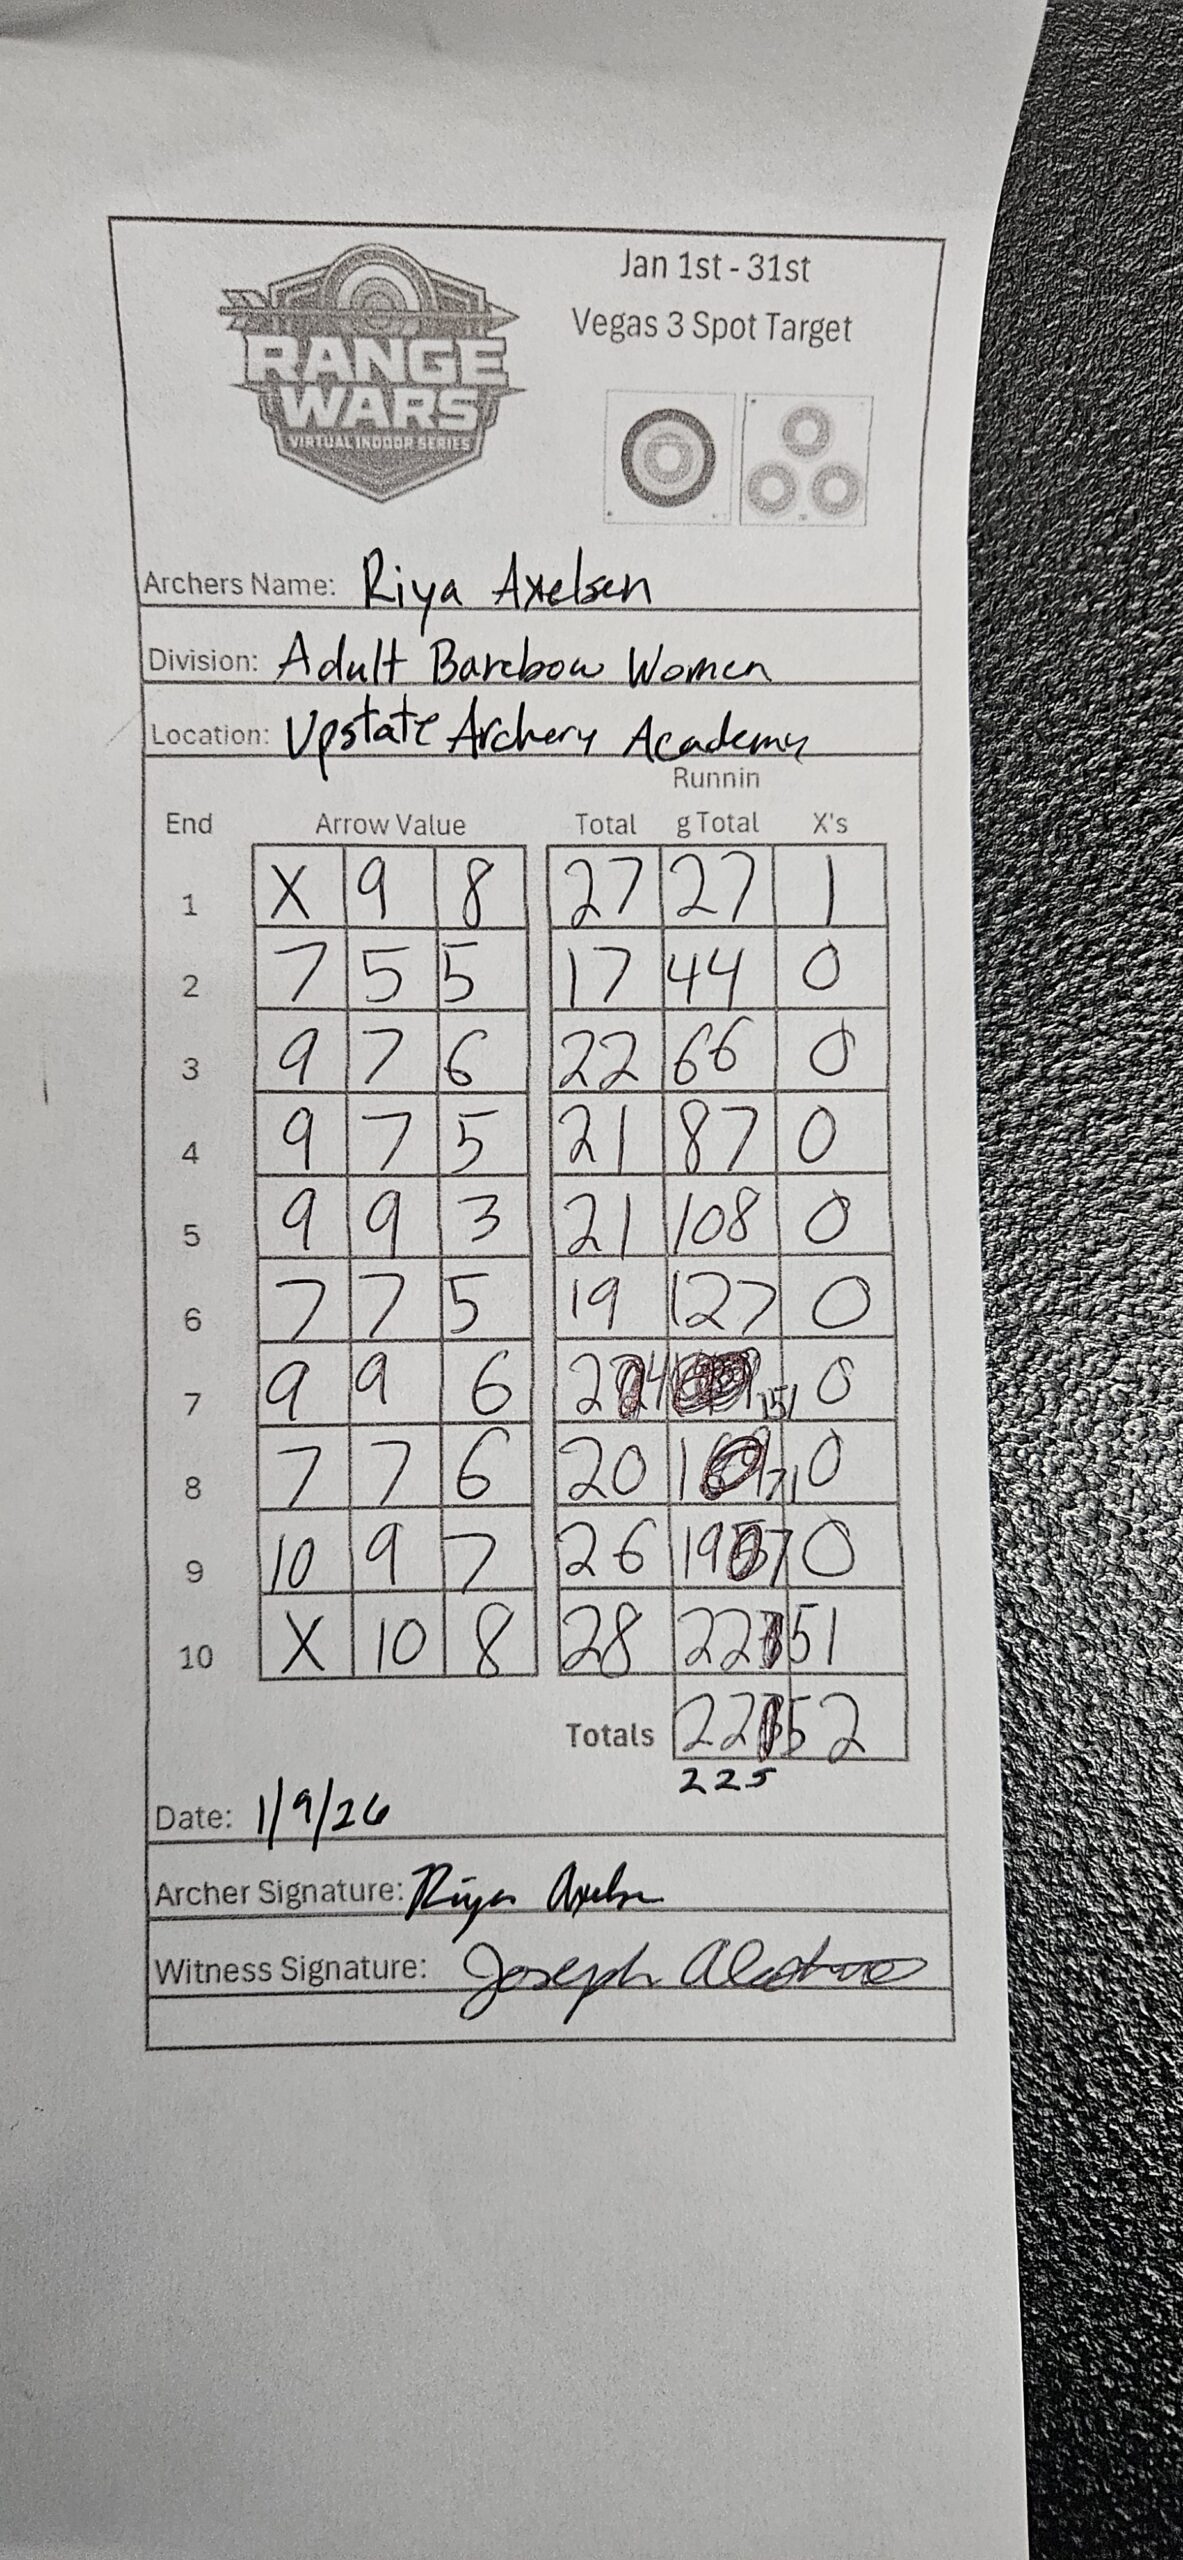 RANGE
WARS
VIRTUAL INDOOR SERIES
Jan 1st - 31st
Vegas 3 Spot Target
Archers Name: Riya Axelsen
Division: Adult Barebow Women
Location: Upstate Archery Academy
Runnin
End Arrow Value Total g Total X's
1 X 9 8 27 27 1
2 7 5 5 17 44 0
3 9 7 6 22 66 0
4 9 7 5 21 87 0
5 9 9 3 21 108 0
6 7 7 5 19 127 0
7 9 9 6 24 151 0
8 7 7 6 20 171 0
9 10 9 7 26 197 0
10 X 10 8 28 225 1
Totals 225 2
225
Date: 1/9/26
Archer Signature: Riya Axelsen
Witness Signature: Joseph